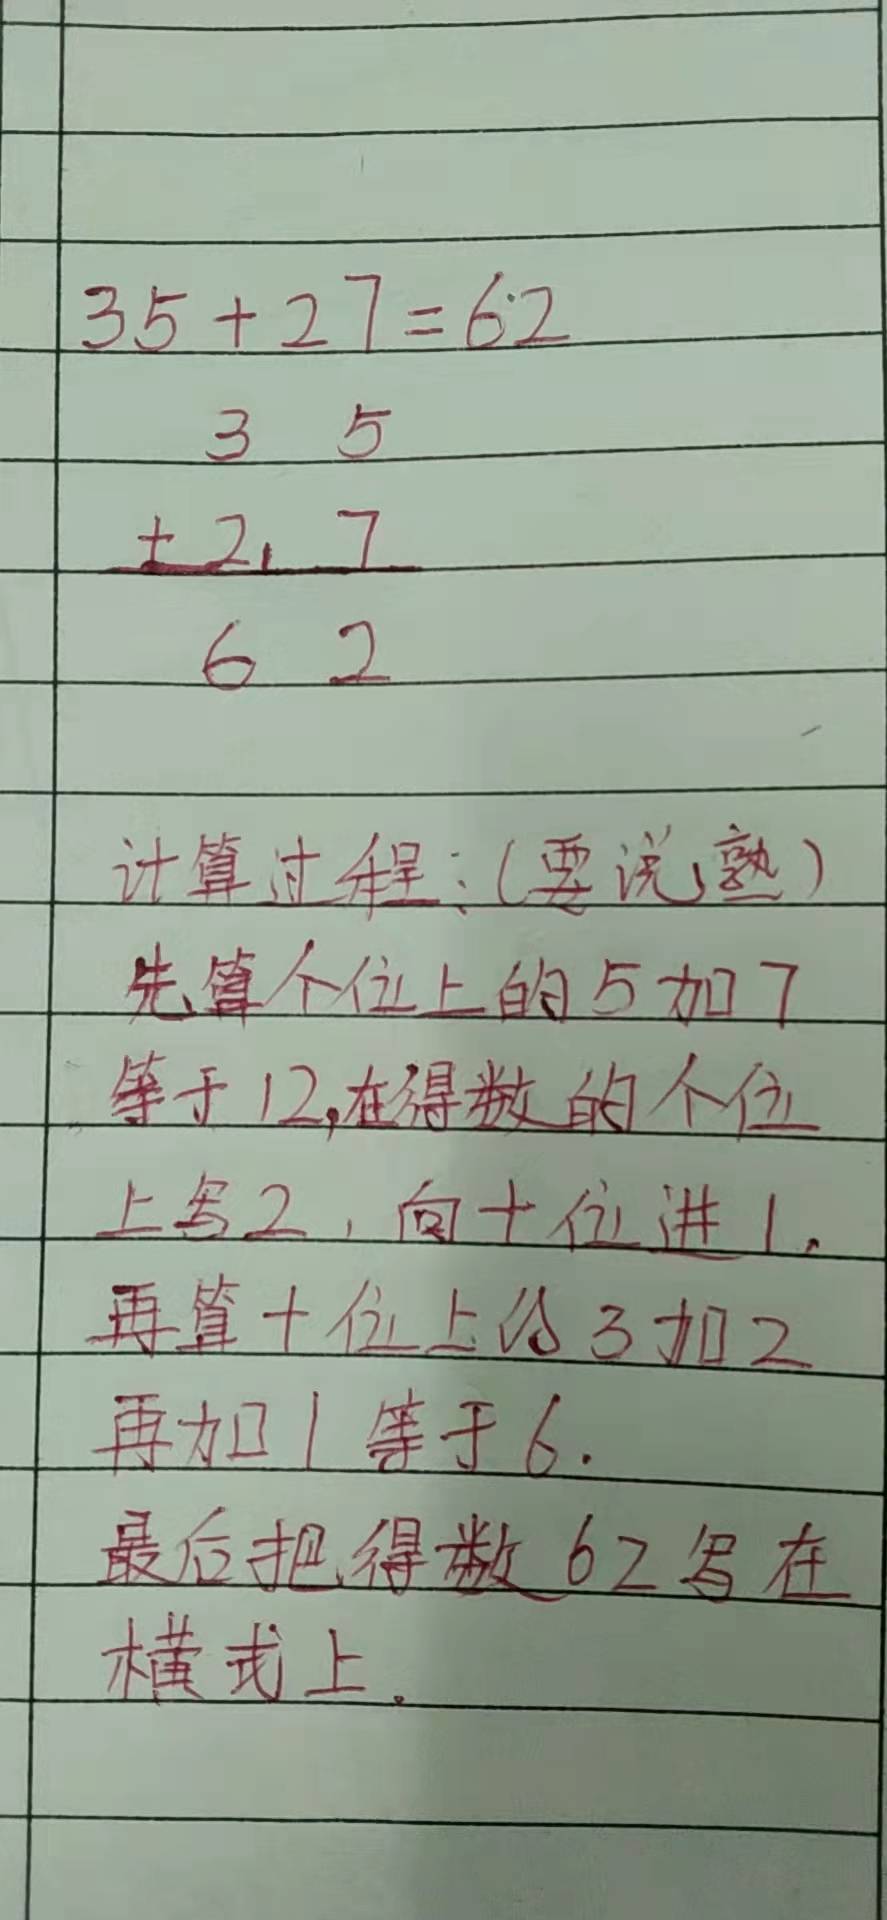 35+27=62
3 5
+2₁ 7
6 2
计算过程:(要说熟)
先算个位上的5加7
等于12,在得数的个位
上写2,向十位进1.
再算十位上的3加2
再加1等于6.
最后把得数62写在
横式上.